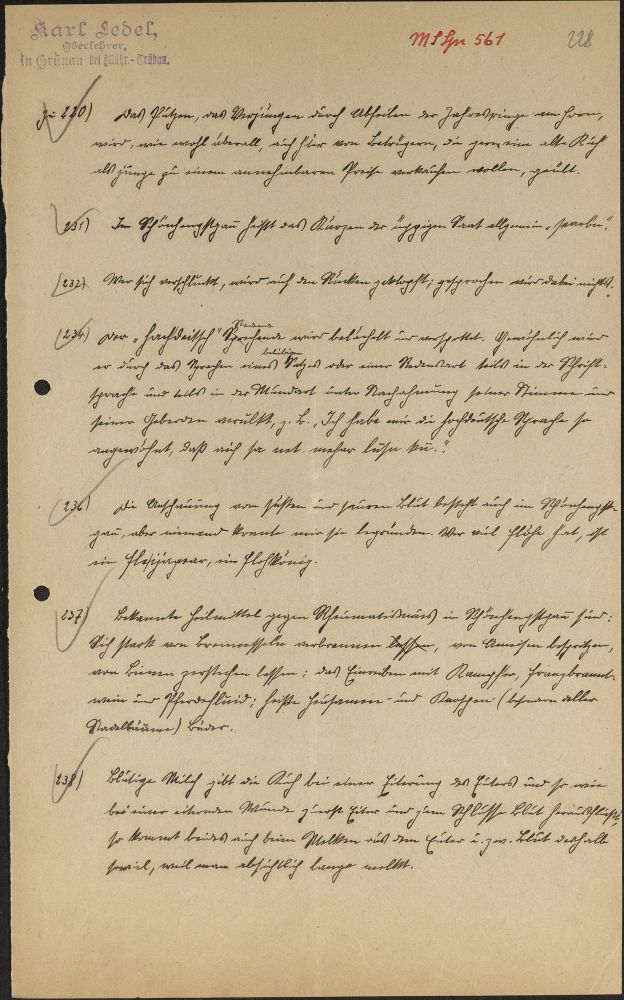 Karl Ledel,
Oberlehrer,
in Grünau bei Mähr.-Trübau.
MS Spr 561
228
zu 220) Das Putzen, das Verjüngen durch Abfeilen der Jahresringe am Horn,
wird, wie wohl überall, auch hier von Betrügern, die gern eine alte Kuh
als junge zu einem annehmbaren Preise verkaufen wollen, geübt.
231) Im Schönhengstgau heißt das Kürzen der üppigen Saat allgemein
232) Wer sich verschluckt, wird auf den Rücken geklopft; gesprochen wird dabei nichts.
234) Der „hochdeitsch" Redende wird belächelt und verspottet. Gewöhnlich wird
er durch das Sprechen eines beliebigen Satzes oder einer Redensart teils in der Schrift-
sprache und teils in der Mundart unter Nachahmung seiner Stimme und
seiner Geberden verulkt, z. B. „Ich habe mir die hochdeutsche Sprache so
angewöhnt, daß ich sa net mehar
236) Die Anschauung vom süßen und sauren Blut besteht auch im Schönhengst-
gau, aber niemand konnte mir sie begründen. Wer viel Flöhe hat, ist
ein ein Flohkönig.
237) Bekannte Heilmittel gegen Rheumatismus im Schönhengstgau sind:
Sich stark von Brennesseln verbrennen lassen, von Ameisen bespritzen,
von Bienen zerstechen lassen; das Einreiben mit Kampfer, Franzbrannt-
wein und Pferdefluid; heiße Heusamen- und Knospen (besonders aller
Nadelbäume) Bäder.
238) Blutige Milch gibt die Kuh bei einer Eiterung des Euters und so wie
bei einer eiternden Wunde zuerst Eiter und zum Schlusse Blut herausfließt,
so kommt beides auch beim Melken aus dem Euter u. zw. Blut deshalb
soviel, weil man absichtlich lange melkt.